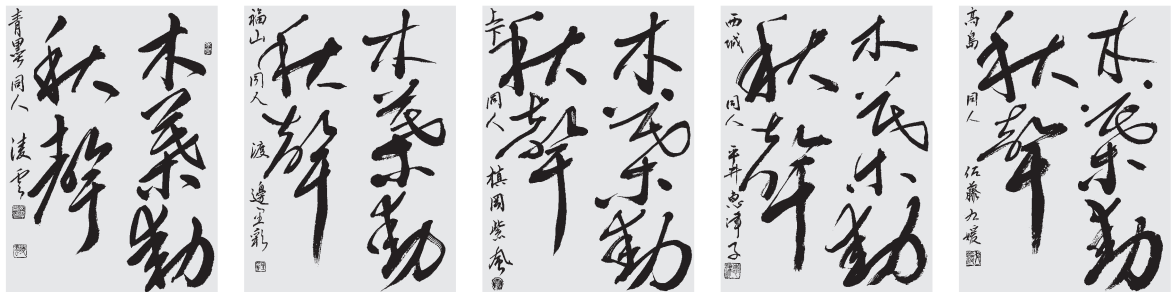 木葉動
秋聲
青墨同人 淩雲
木葉動
秋聲
福山 同人 渡邊玉彩
木葉動
秋聲
上下 同人 槙岡紫風
木葉動
秋聲
西城 同人 平井恵津子
木葉動
秋聲
高島 同人 佐藤九媛